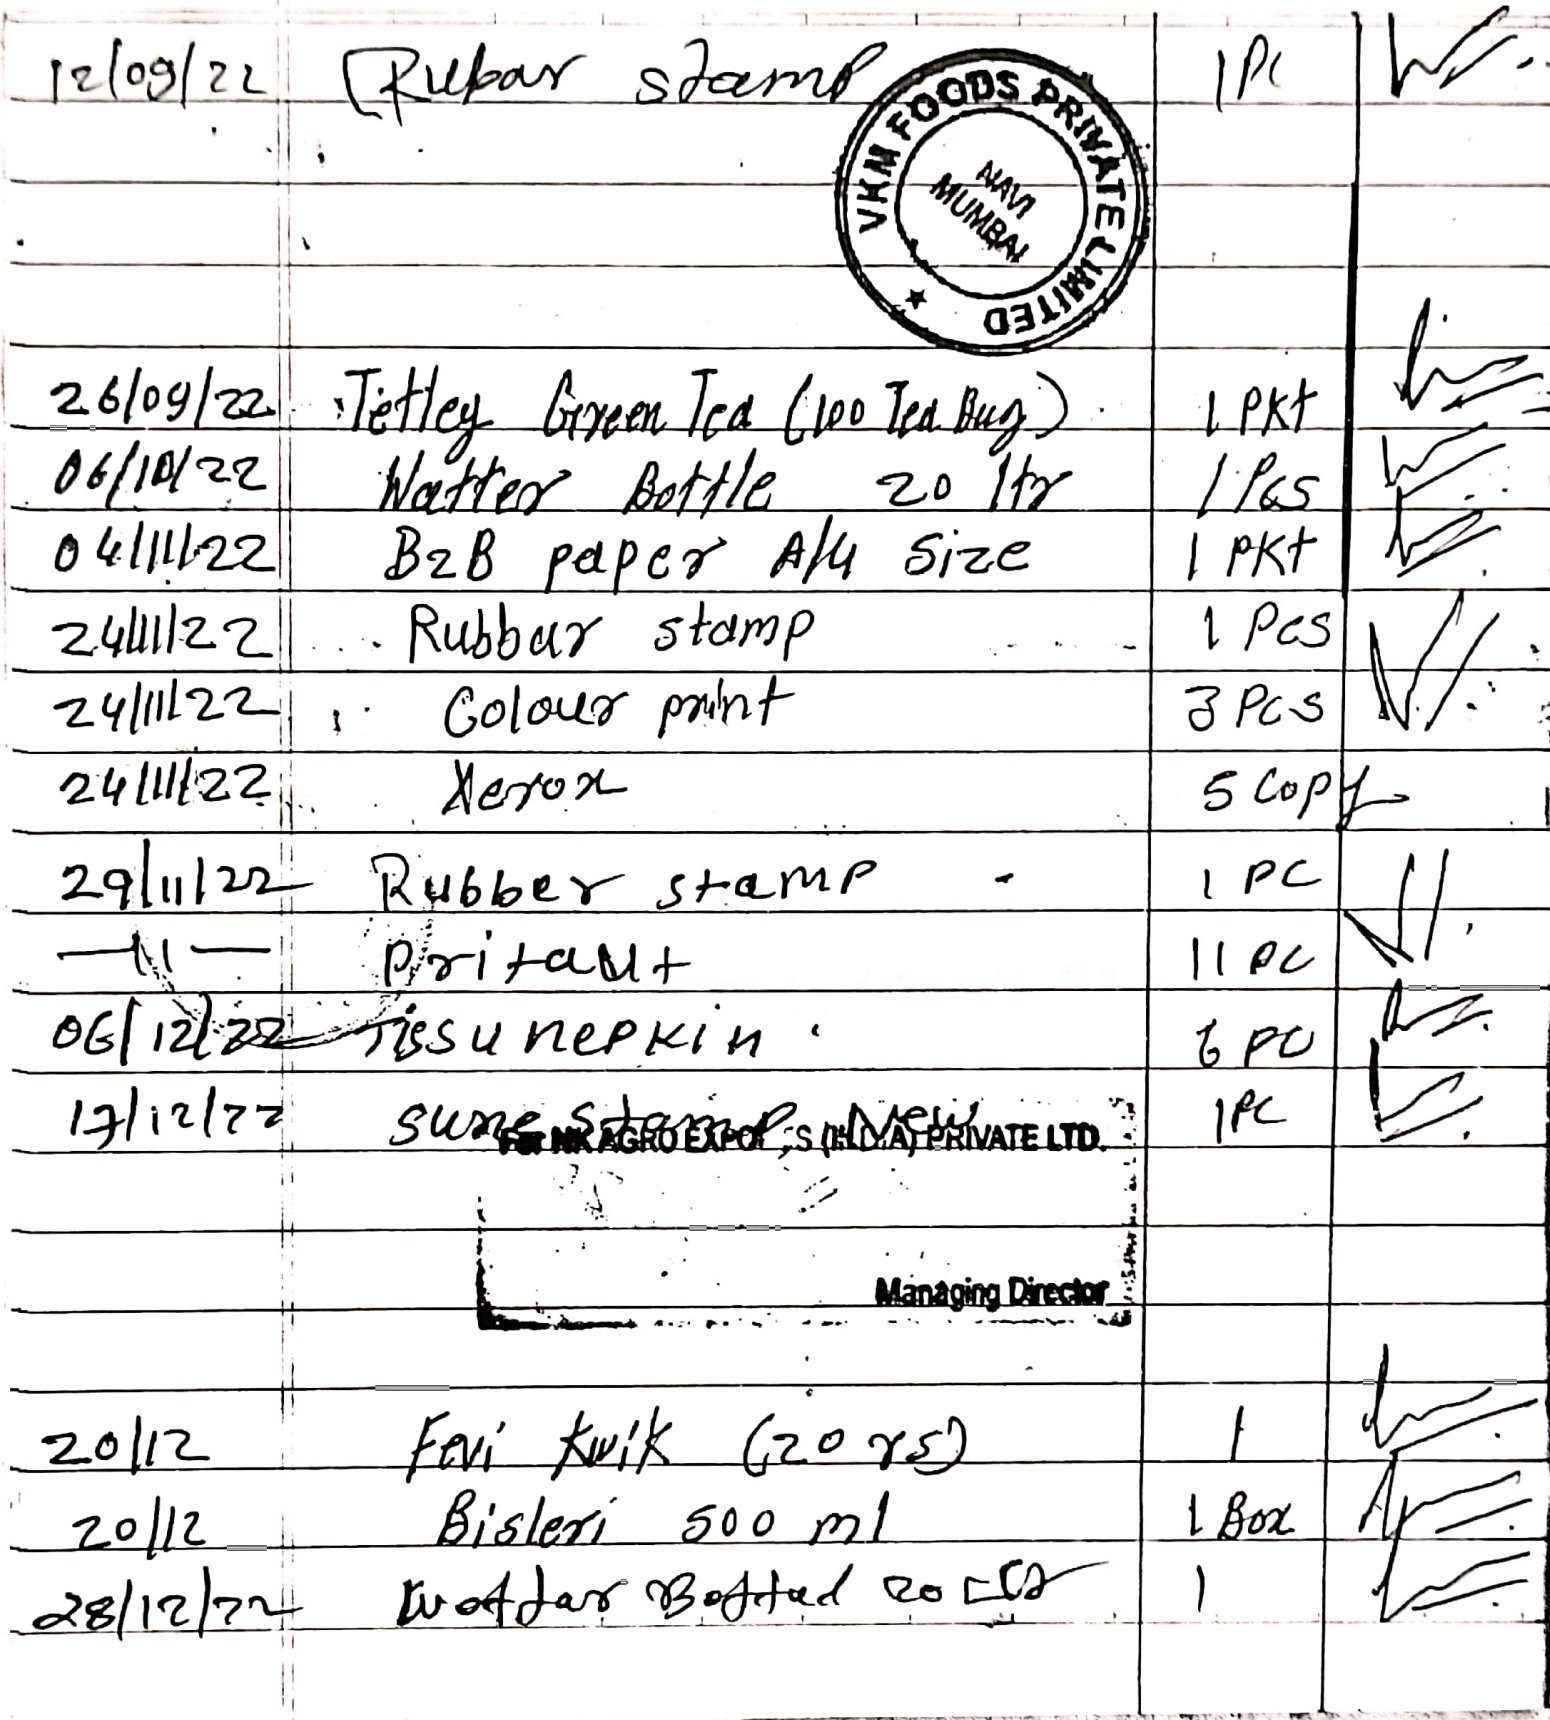 12/09/22 Rubar stamp 1 PC
VKM FOODS PRIVATE LIMITED
NAVI
MUMBAI
26/09/22 Tetley Green Tea (100 Tea Bug) 1 PKt
06/10/22 Watter Bottle 20 ltr 1 Pcs
04/11/22 B2B paper A/4 Size 1 PKt
24/11/22 Rubbar stamp 1 Pcs
24/11/22 Colour print 3 Pcs
24/11/22 Xerox 5 Copy
29/11/22 Rubber stamp - 1 PC
—11— pritaut 11 PC
06/12/22 Tissu nepkin 6 PC
17/12/22 stamp New 1PC
For NK AGRO EXPO S (INDIA) PRIVATE LTD.
Managing Director
20/12 Fevi Kwik (20 rs) 1
20/12 Bisleri 500 ml 1 Box
28/12/22 Wottar Bottad 20 Ltr 1